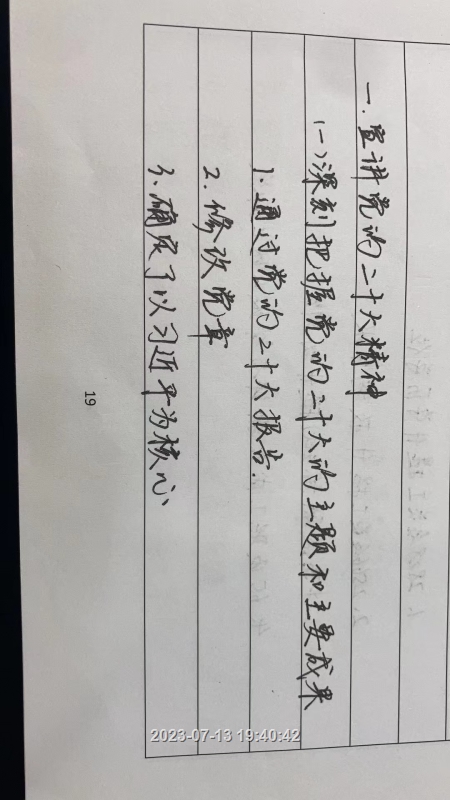 一.宣讲党的二十大精神
(一)深刻把握党的二十大的主题和主要成果
1.通过党的二十大报告.
2.修改党章
3.确定了以习近平为核心、
19
2023-07-13 19:40:42